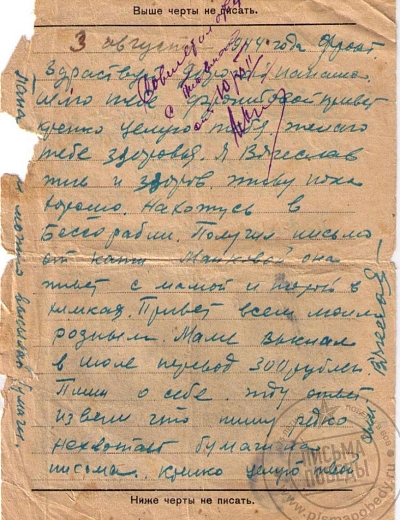 Выше черты не писать.
3 августа 1944 года фронт
Здраствуй дорогой папаша.
Шлю тебе фронтовой привет
крепко целую тебя желаю
тебе здоровья. Я Вячеслав
жив и здоров. живу пока
хорошо. Нахожусь в
Бессарабии. Получил письмо
от Кати Майковой она
живет с мамой и
химках. Привет всем моим
родным. Маме выслал
в июле перевод 300 рублей
Пиши о себе. жду ответ
извени что пишу редко
нехватает бумаги на
письма. крепко целую твой
сын Вячеслав
Папа
если можно вышли бумаги
с
от 10/VII
Ниже черты не писать.
ПИСЬМА
ПОБЕДЫ
www.pismapobedy.ru